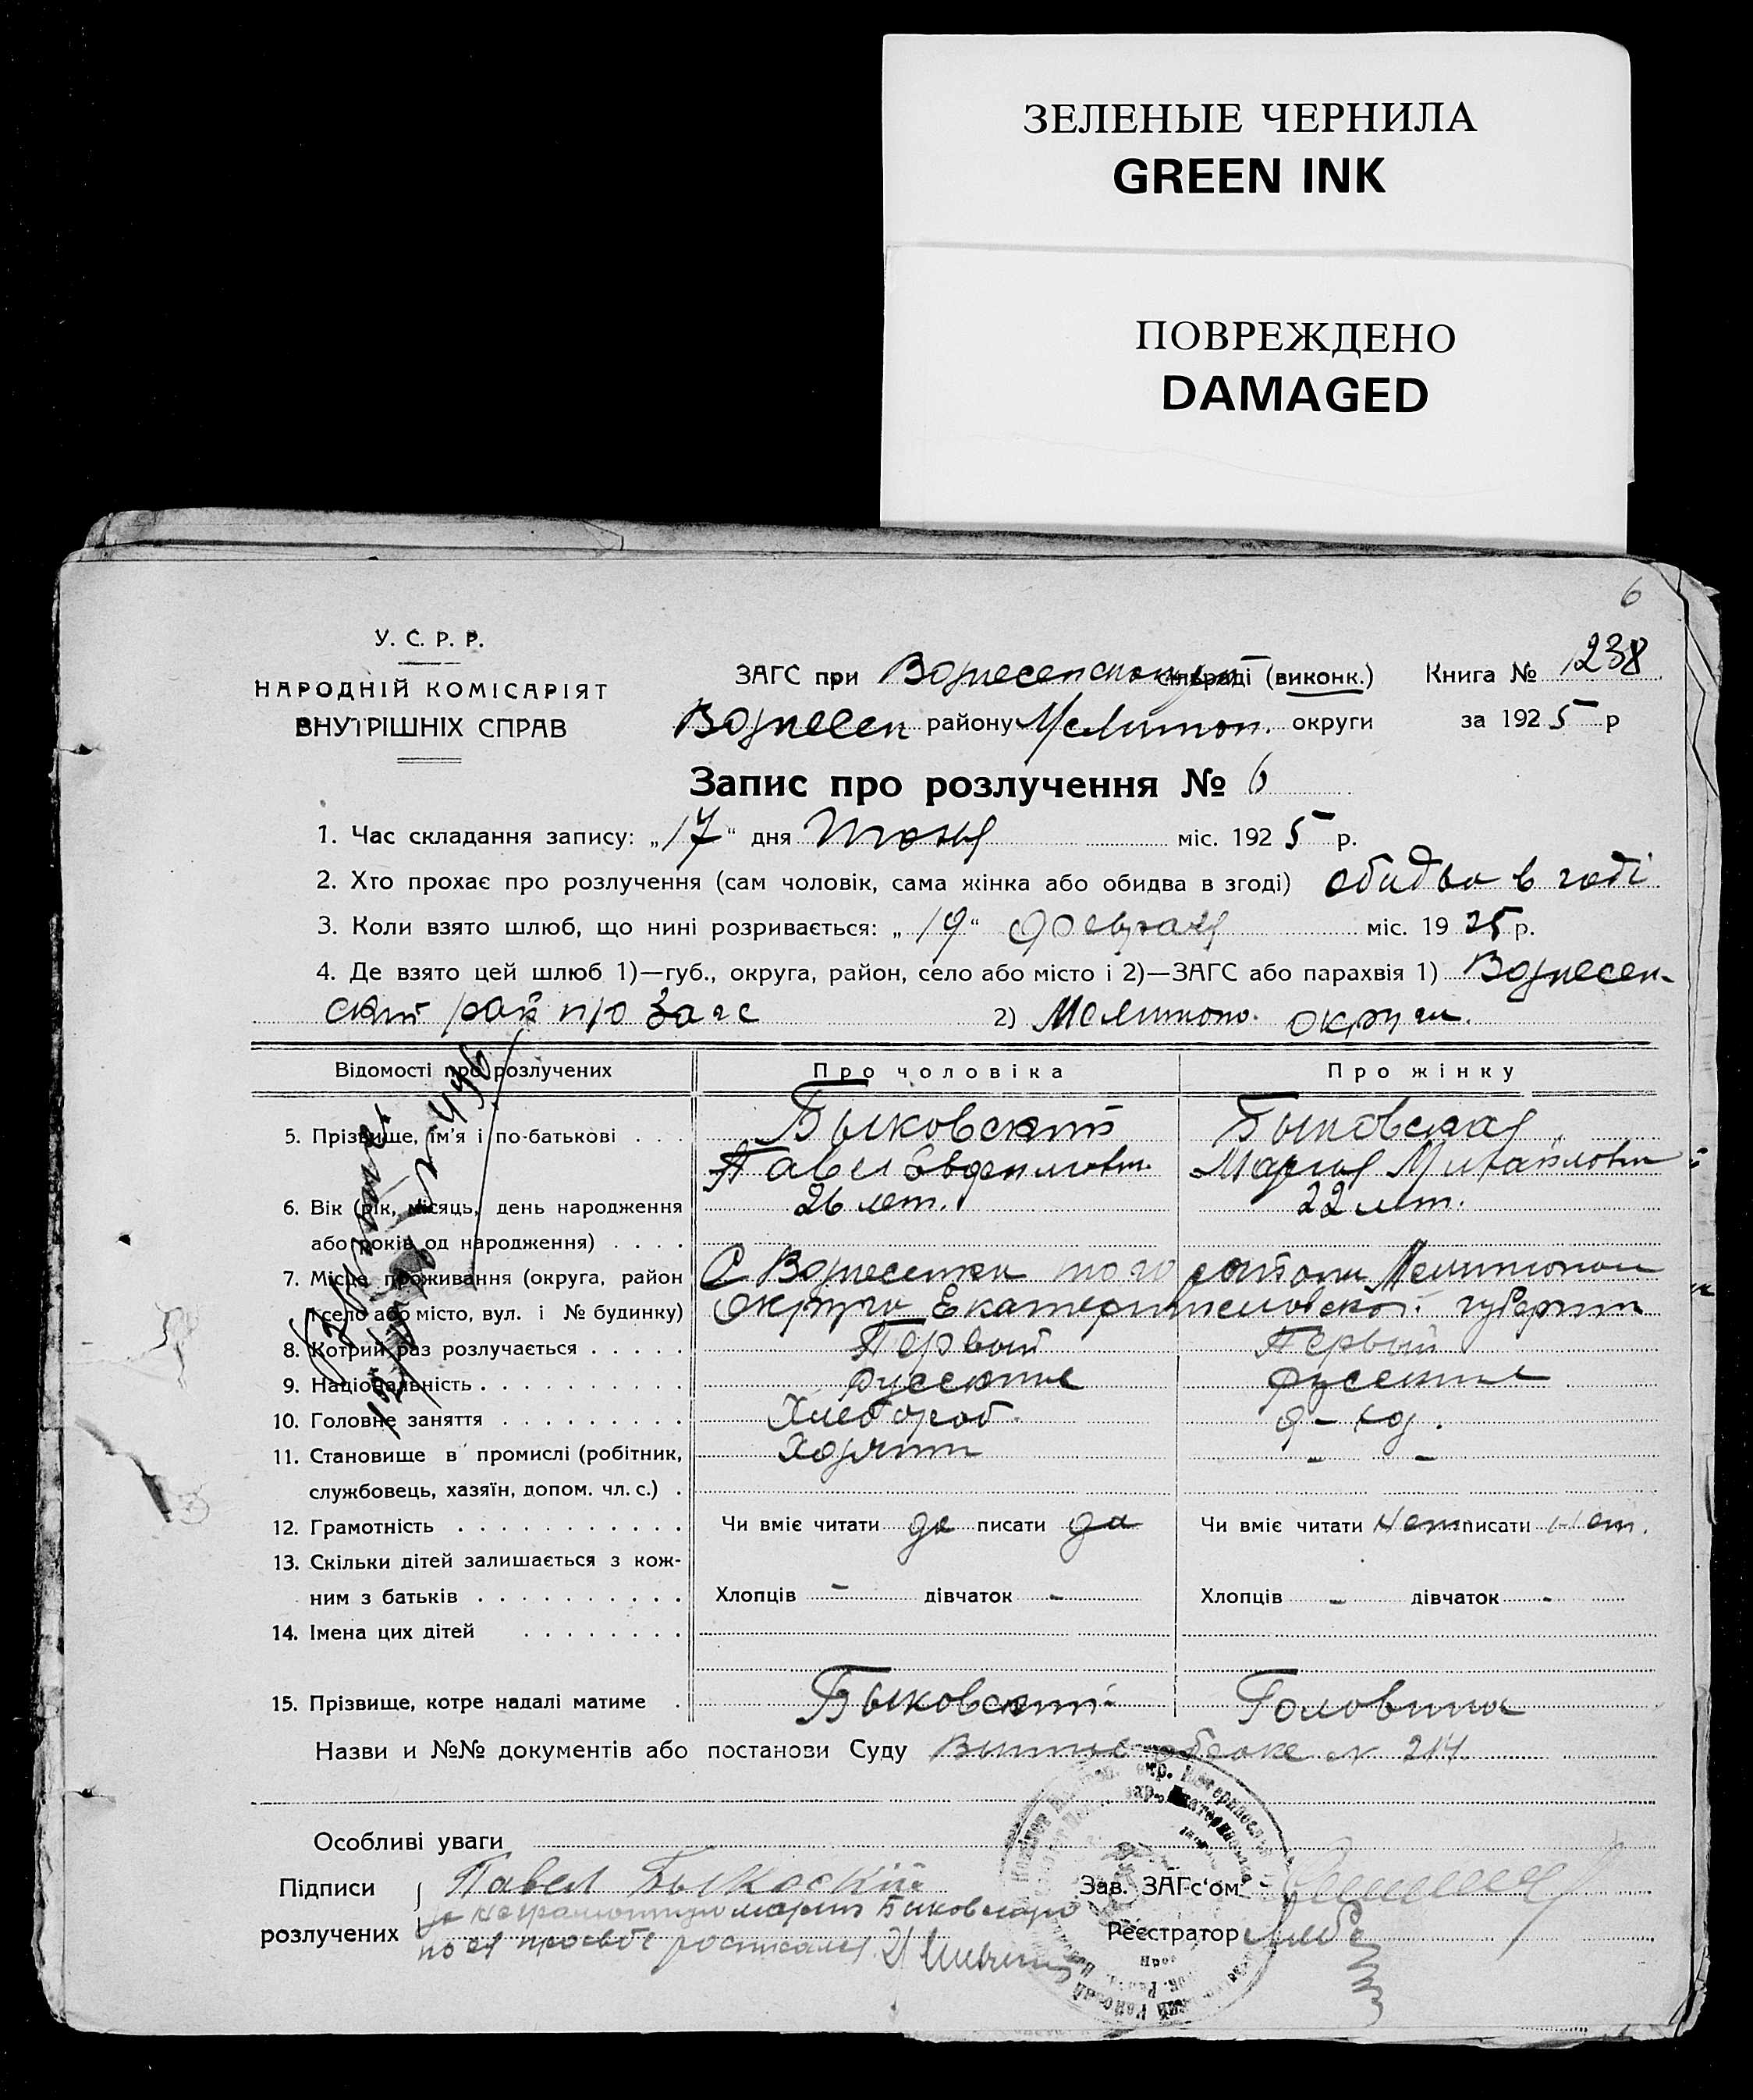 ЗЕЛЕНЫЕ ЧЕРНИЛА
GREEN INK
ПОВРЕЖДЕНО
DAMAGED
6
У. С. Р. Р.
НАРОДНІЙ КОМІСАРІЯТ
ВНУТРІШНІХ СПРАВ
ЗАГС при Вознесенском (виконк.) Книга № 238
Вознесен району Мелитоп. округи за 1925 р
Запис про розлучення № 6
1. Час складання запису: „17“ дня Июня міс. 1925 р.
2. Хто прохає про розлучення (сам чоловік, сама жінка або обидва в згоді) обидва в годі
3. Коли взято шлюб, що нині розривається: „19“ Февраля міс. 1925 р.
4. Де взято цей шлюб 1)—губ., округа, район, село або місто і 2)—ЗАГС або парахвія 1) Вознесен-
ский рай Загс 2) Мелитопо. округи.
Відомості про розлучених Про чоловіка Про жінку
5. Прізвище, ім'я і по-батькові . . . Быковский Быковская
Павел Мария Михайловн
6. Вік (рік, місяць, день народження 26 лет. 22 лет.
або років од народження) . . . .
7. Місце проживання (округа, район С Вознесенка того Мелитопол
і село або місто, вул. і № будинку) округа Екатеринославской губернии
8. Котрий раз розлучається . . . . . Первый Первый
9. Національність . . . . . . . . . . русские русские
10. Головне заняття . . . . . . . . . Хлебороб.
11. Становище в промислі (робітник, Хозяин - -
службовець, хазяїн, допом. чл. с.) .
12. Грамотність . . . . . . . . . . . Чи вміє читати да писати да Чи вміє читати Нет писати Нет.
13. Скільки дітей залишається з кож-
ним з батьків . . . . . . . . . . Хлопців - дівчаток - Хлопців - дівчаток -
14. Імена цих дітей . . . . . . . .
15. Прізвище, котре надалі матиме . Быковский Головина
Назви и №№ документів або постанови Суду № 214
Особливі уваги
Підписи Павел Быкоский
за неграмотную Марию Биковскую Зав. ЗАГС'ом
розлучених по ея просьбе росписался Реєстратор